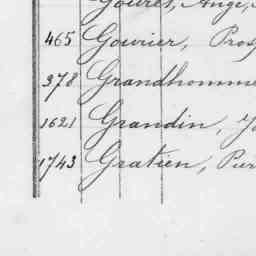 Gouret, Ange,
465 Gouvier, Prosp
378 Grandhomme
1621 Grandin, J
1743 Gratien, Pier